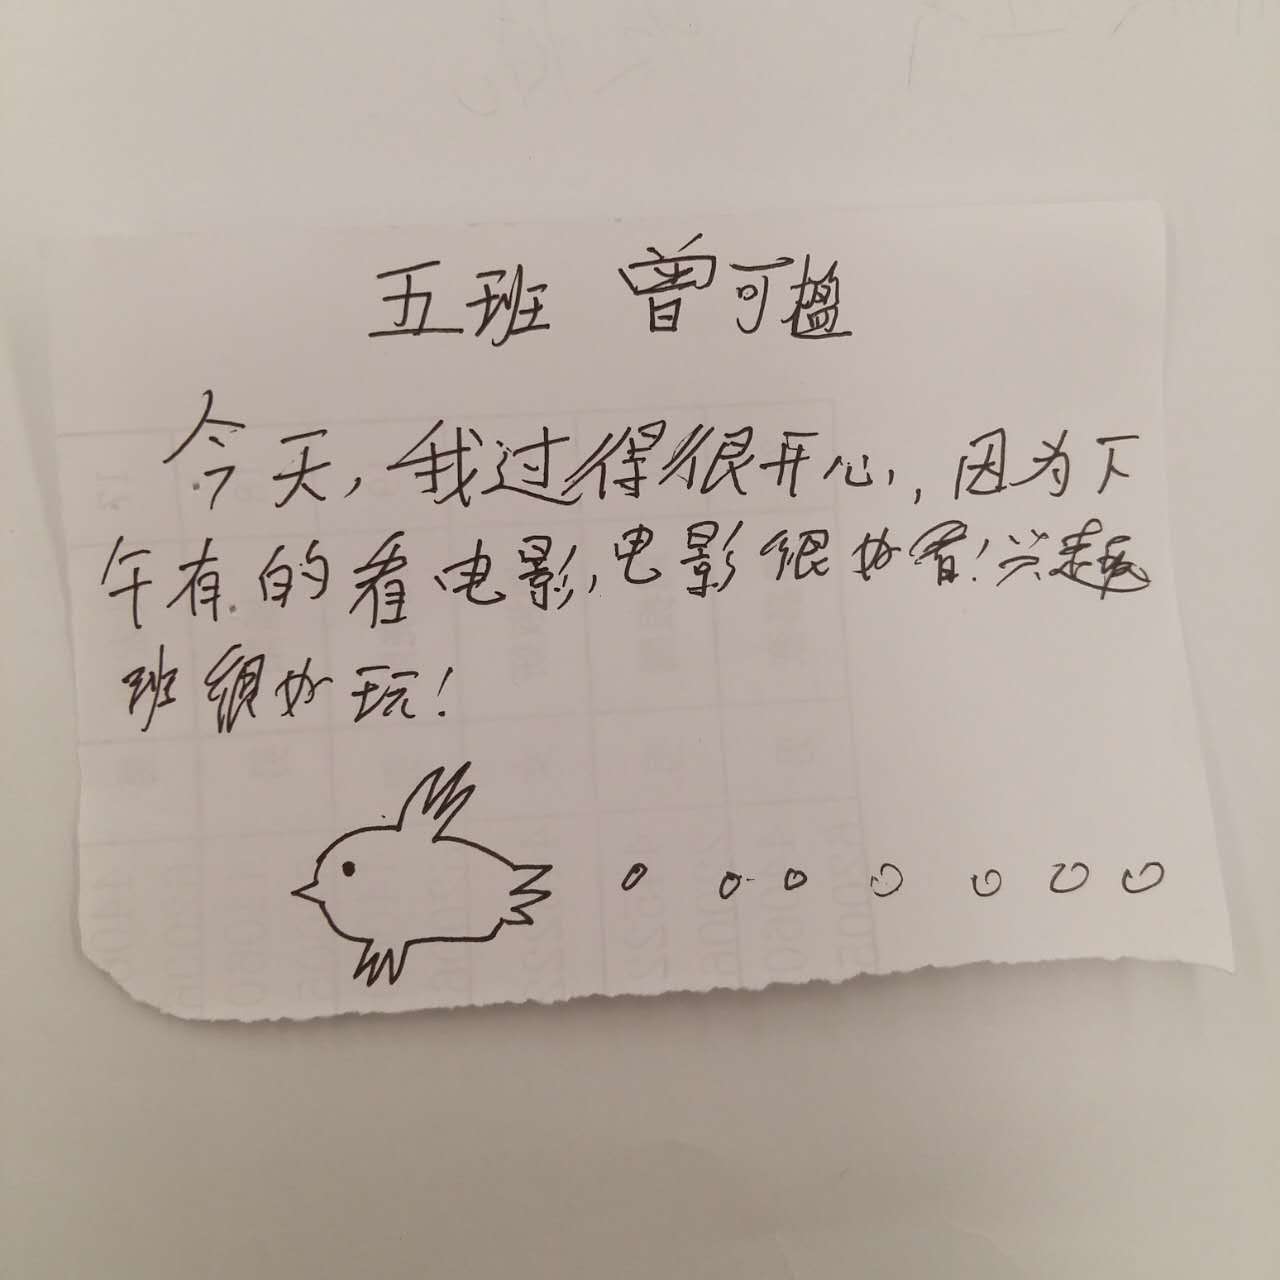 五班 曾可楹
今天,我过得很开心,因为下
午有的看电影,电影很好看!兴趣
班很好玩!